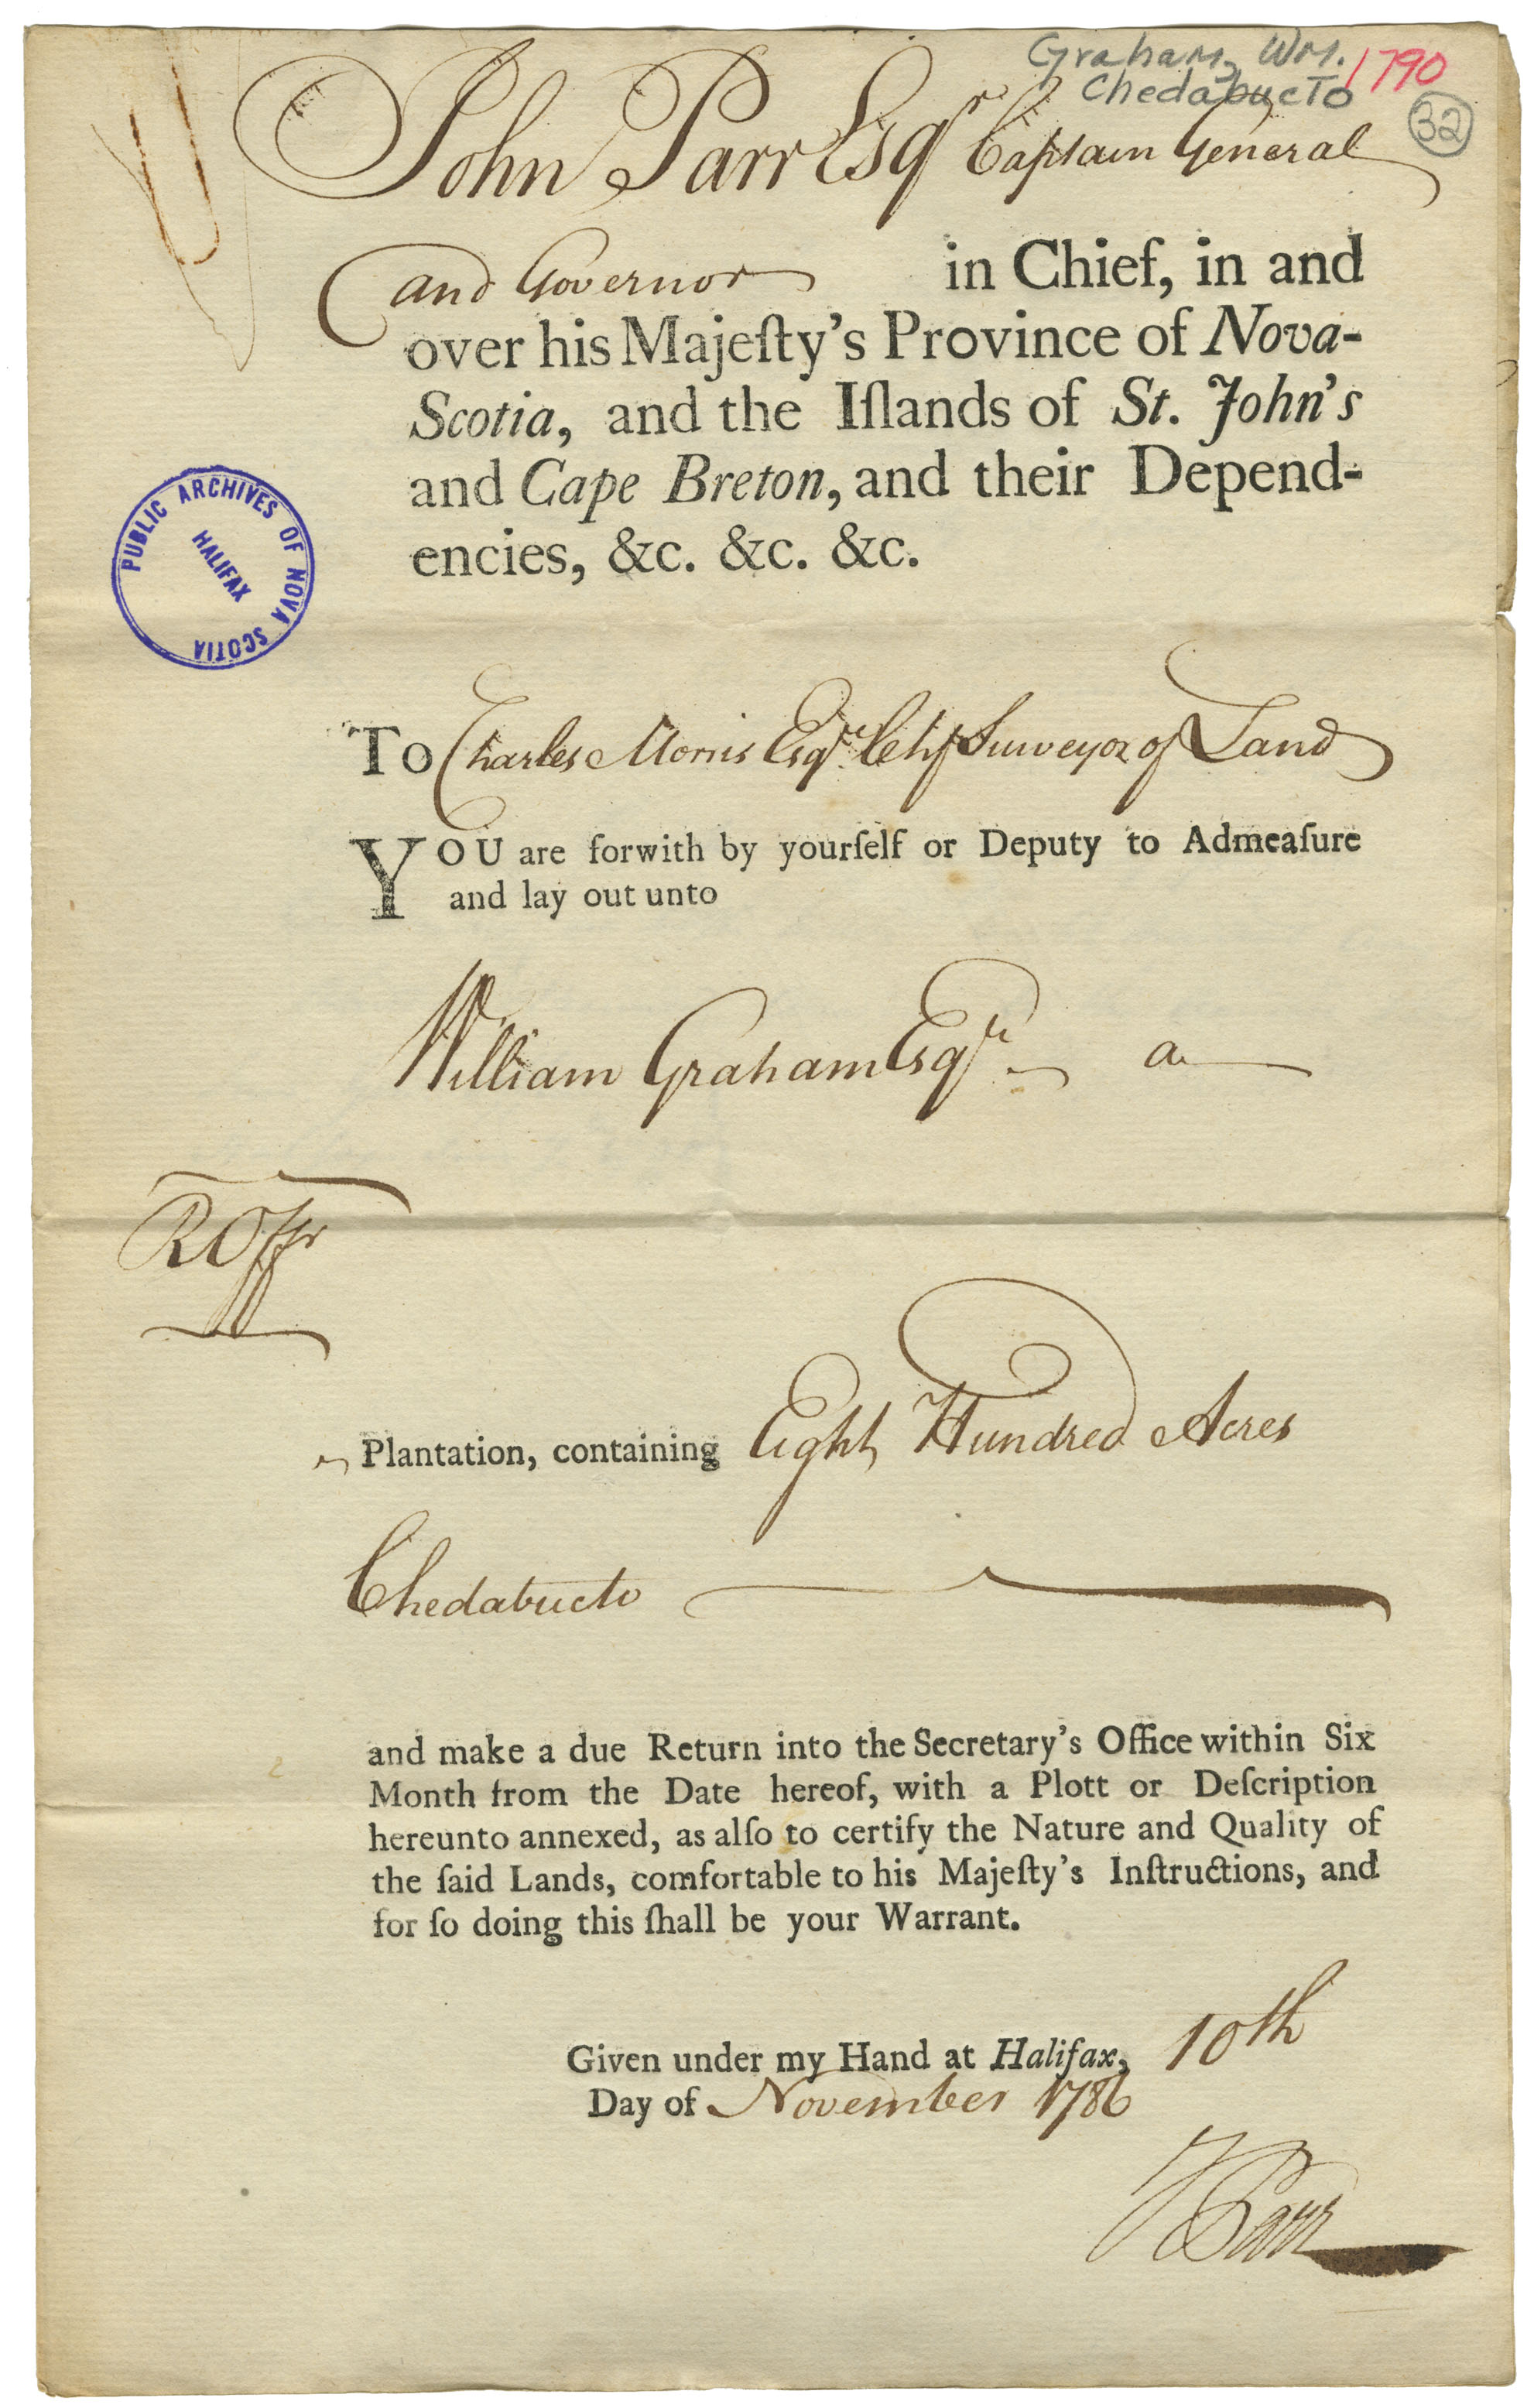 Graham, Wm. 1790
Chedabucto
32
John Parr Esqr Captain General
and Governor in Chief, in and
over his Majeſty's Province of Nova-
Scotia, and the Iſlands of St. John's
and Cape Breton, and their Depend-
encies, &c. &c. &c.
PUBLIC ARCHIVES OF NOVA SCOTIA
HALIFAX
To Charles Morris Esqr Chf Surveyor of Land
YOU are forwith by yourſelf or Deputy to Admeaſure
and lay out unto
William Graham Esqr a
Plantation, containing Eight Hundred Acres
Chedabucto
and make a due Return into the Secretary's Office within Six
Month from the Date hereof, with a Plott or Deſcription
hereunto annexed, as alſo to certify the Nature and Quality of
the ſaid Lands, comfortable to his Majeſty's Inſtructions, and
for ſo doing this ſhall be your Warrant.
Given under my Hand at Halifax, 10th
Day of November 1786
J Parr